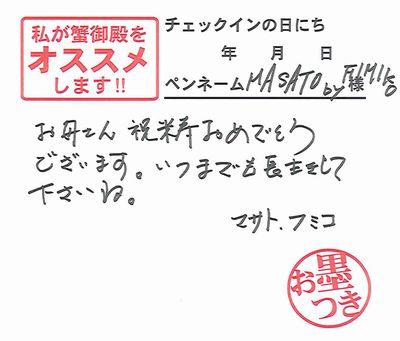 私が蟹御殿を
オススメ
します!!
チェックインの日にち
年 月 日
ペンネーム MASATO by FUMIKO 様
お母さん 祝米寿おめでとう
ございます。いつまでも長生きして
下さいね。
マサト、フミコ
お墨つき